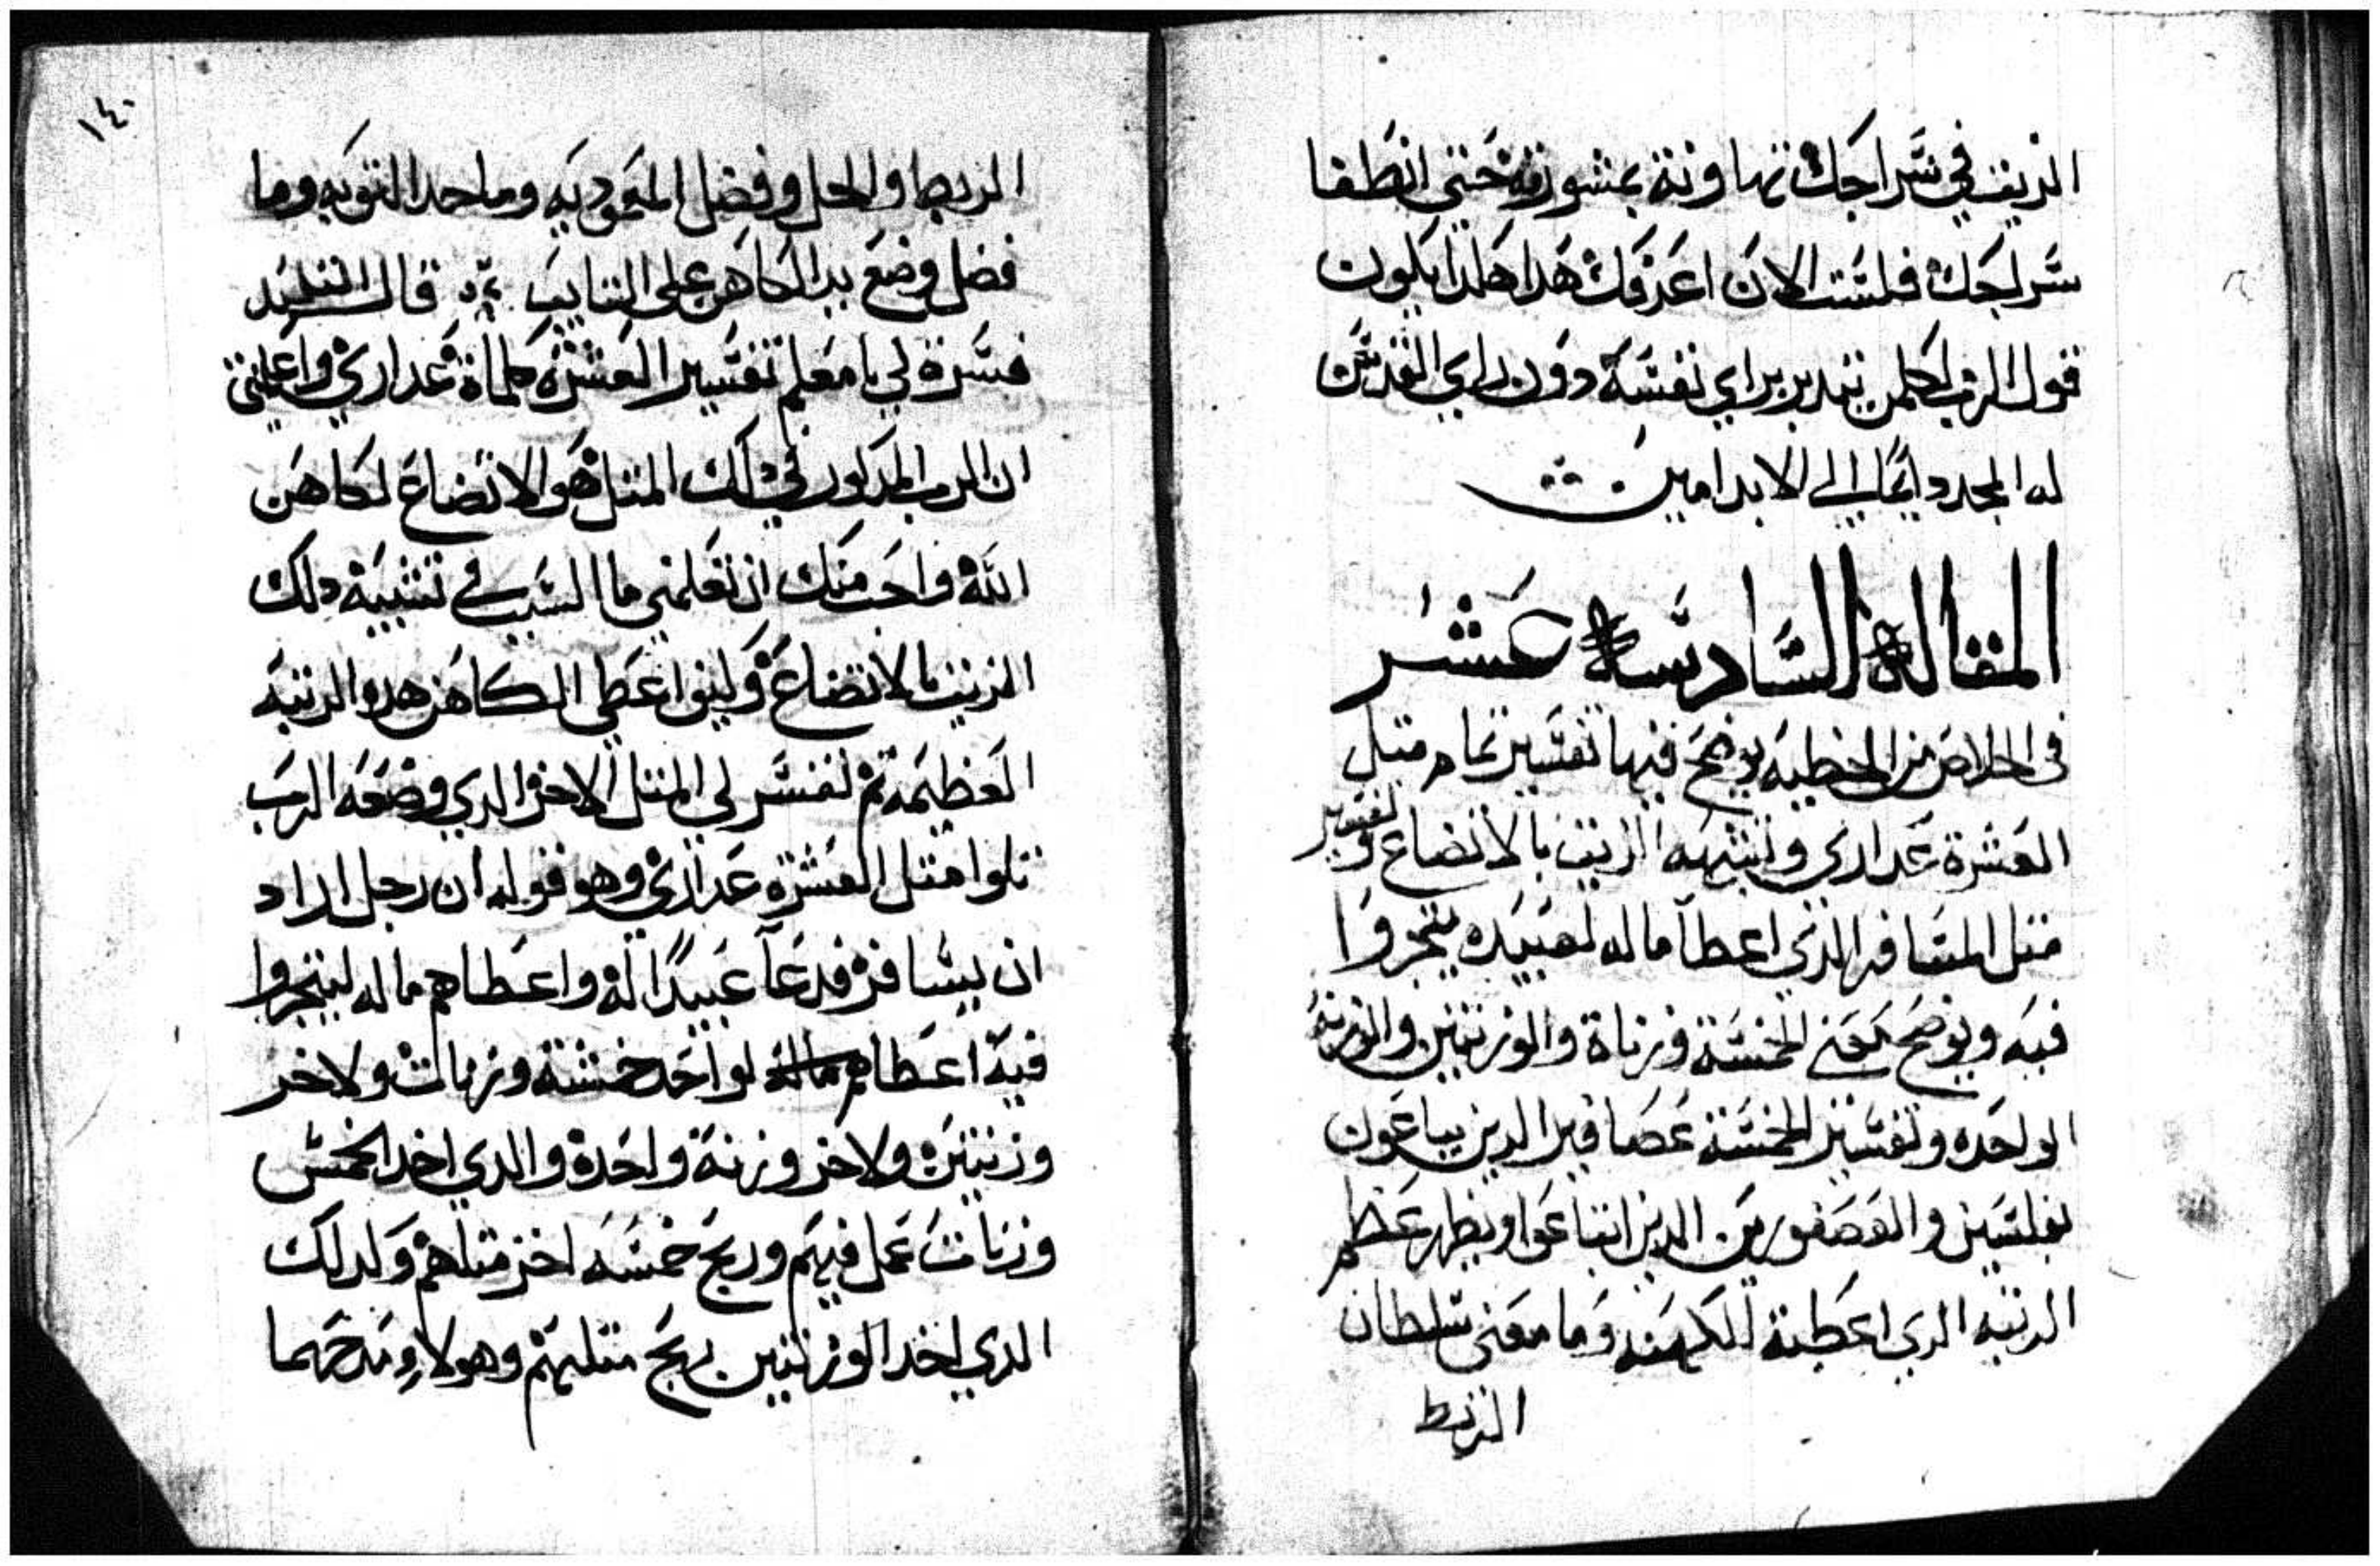 الزيت في سراجك تهاونة بمشورته حتى انطفا
سراجك فلست الان اعرفك هدا هكدا يكون
قول الرب لكلمن يتدبر براي نفسه دون راي القديس
له المجد دايما الي الابد امين
المقالة السادسة عشر
في الخلاص من الخطيه يوضح فيها تفسير تمام متل
العشرة عداري وتشبهه الزيت بالاتضاع وتفسير
متل المسافر الذي اعطا ماله لعبيده يتجروا
فيه ويوضح معني الخمسة وزناة والوزنتين والوزنة
الواحده وتفسير الخمسة عصافير الدين يباعون
بفلسين والعصفورين الدين ابتاعوا ويظهر عظم
الرتبه الدي اعطية للكهنه وما معني سلطان
الربط
١٤٠
الربط والحل وفضل المعموديه وما حد التوبه وما
فضل وضع يد الكاهن علي التايب قال التلميد
فسرة لي يا معلم تفسير العشرة كلماة عداري واعلمتني
ان الزيت المدكور في دلك المتل هو الاتضاع لكاهن
الله واحب منك ان تعلمني ما السبب في تشبيه دلك
الزيت بالاتضاع وكيف اعطي الكاهن هده الرتبه
العظيمه تم تفسر لي المتل الاخر الدي وضعه الرب
تلوا متل العشرة عداري وهو قوله ان رجل اراد
ان يسافر فدعا عبيدا له واعطاهم ماله ليتجروا
فيه اعطاهم ماله لواحد خمسة وزنات ولاخر
وزنتين ولاخر وزنة واحدة والدي اخد الخمس
وزنات عمل فيهم وربح خمسه اخر متلهم وكدلك
الدي اخد الوزنتين ربح متليهم وهولاء مدحهما